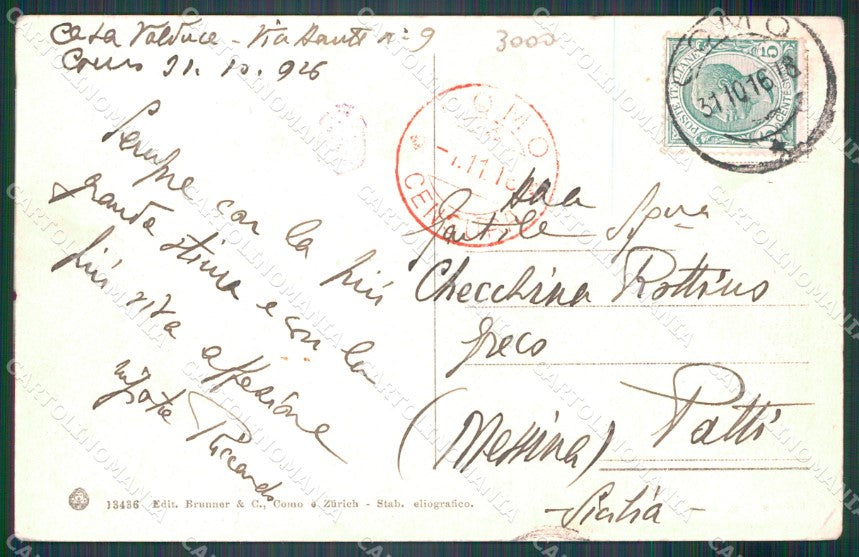 Casa Valduce - Via Dante n: 9
Como 31. 10. 916
3000
Sempre con la più
grande stima e con la
più viva affezione
nipote Riccardo
COMO
31 10 16 18
POSTE ITALIANE
CENTESIMI
5
COMO
-1.11.16
CENSURA
Alla
Gentile Sigra
Checchina Rottino
Greco
(Messina) Patti
- Sicilia -
13486 Edit. Brunner & C., Como e Zürich - Stab. eliografico.
CARTOLINOMANIA